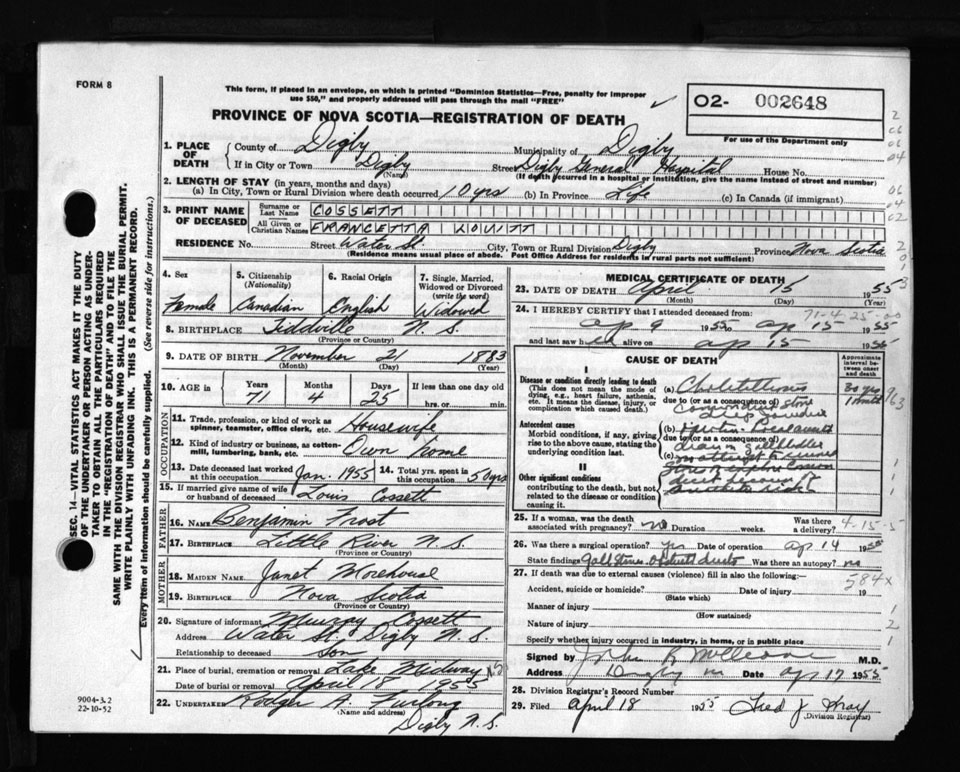 FORM 8
This form, if placed in an envelope, on which is printed "Dominion Statistics—Free, penalty for improper
use $50," and properly addressed will pass through the mail "FREE"
O2- 002648
For use of the Department only
PROVINCE OF NOVA SCOTIA—REGISTRATION OF DEATH
1. PLACE OF DEATH
County of Digby Municipality of Digby
If in City or Town Digby Street Digby General Hospital House No.
(Name) (If death occurred in a hospital or institution, give the name instead of street and number)
2. LENGTH OF STAY (in years, months and days)
(a) In City, Town or Rural Division where death occurred 10 yrs (b) In Province Life (c) In Canada (if immigrant)
3. PRINT NAME OF DECEASED
Surname or Last Name COSSETT
All Given or Christian Names FRANCETTA LOVITT
RESIDENCE No. Street Water St. City, Town or Rural Division Digby Province Nova Scotia
(Residence means usual place of abode. Post Office Address for residents in rural parts not sufficient)
4. Sex 5. Citizenship (Nationality) 6. Racial Origin 7. Single, Married, Widowed or Divorced (write the word)
Female Canadian English Widowed
8. BIRTHPLACE Tiddville N.S.
(Province or Country)
9. DATE OF BIRTH November 21 1883
(Month) (Day) (Year)
10. AGE in Years Months Days If less than one day old
71 4 25 hrs. or min.
OCCUPATION
11. Trade, profession, or kind of work as spinner, teamster, office clerk, etc. Housewife
12. Kind of industry or business, as cotton-mill, lumbering, bank, etc. Own home
13. Date deceased last worked at this occupation Jan. 1955 14. Total yrs. spent in this occupation 50 yrs
15. If married give name of wife or husband of deceased Louis Cossett
FATHER
16. NAME Benjamin Frost
17. BIRTHPLACE Little River N.S.
MOTHER
18. MAIDEN NAME Janet Morehouse
19. BIRTHPLACE Nova Scotia
(Province or Country)
20. Signature of informant Murray Cossett
Address Water St. Digby N.S.
Relationship to deceased Son
21. Place of burial, cremation or removal Lake Midway N.S.
Date of burial or removal April 18 1955
22. UNDERTAKER A. Furlong
(Name and address)
Digby N.S.
MEDICAL CERTIFICATE OF DEATH
23. DATE OF DEATH April 15 1955
(Month) (Day) (Year)
24. I HEREBY CERTIFY that I attended deceased from:
71-4-25-00
ap 9 1955 to ap 15 1955
and last saw her alive on ap 15 1955
CAUSE OF DEATH
Approximate interval between onset and death
I
Disease or condition directly leading to death
(This does not mean the mode of dying, e.g., heart failure, asthenia, etc. It means the disease, injury, or complication which caused death.)
(a) Cholelithiasis 30 yrs
due to (or as a consequence of) stone 1 month
Antecedent causes
Morbid conditions, if any, giving rise to the above cause, stating the underlying condition last.
(b)
due to (or as a consequence of)
(c)
II
Other significant conditions
contributing to the death, but not related to the disease or condition causing it.
25. If a woman, was the death associated with pregnancy? no Duration weeks. Was there a delivery?
4-15-5
26. Was there a surgical operation? yes Date of operation ap 14 1955
State findings Gall stones Was there an autopsy? no
27. If death was due to external causes (violence) fill in also the following:—
584x
Accident, suicide or homicide? Date of injury 19
(State which)
Manner of injury
(How sustained)
Nature of injury
Specify whether injury occurred in industry, in home, or in public place
Signed by John R McCleave M.D.
Address Digby NS Date ap 17 1955
28. Division Registrar's Record Number
29. Filed April 18 1955 Fred J
(Division Registrar)
SEC. 14—VITAL STATISTICS ACT MAKES IT THE DUTY
OF THE UNDERTAKER OR PERSON ACTING AS UNDER-
TAKER TO OBTAIN ALL THE PARTICULARS REQUIRED
IN THE "REGISTRATION OF DEATH" AND TO FILE THE
SAME WITH THE DIVISION REGISTRAR WHO SHALL ISSUE THE BURIAL PERMIT.
WRITE PLAINLY WITH UNFADING INK. THIS IS A PERMANENT RECORD.
Every item of information should be carefully supplied. (See reverse side for instructions.)
9004-3.2
22-10-52